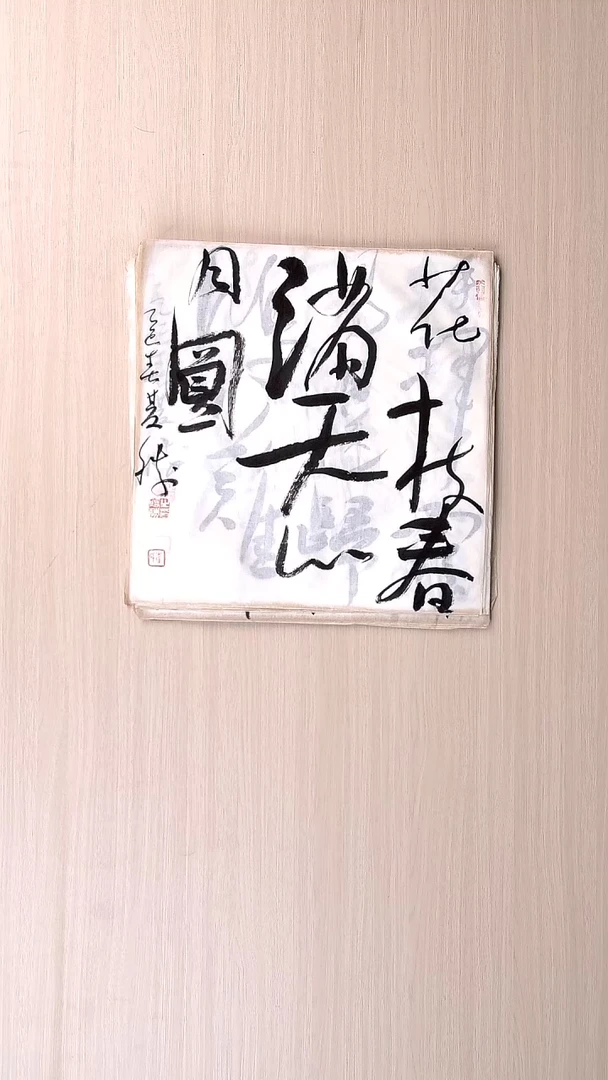 花十枝春
滿天心
月圓